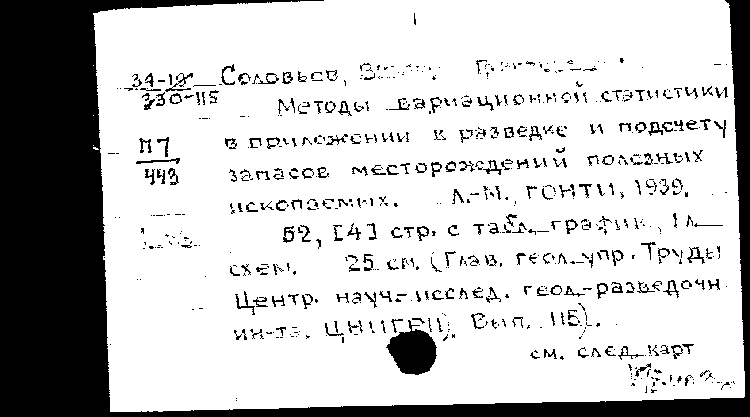 34-19 Соловьев,
330-115
Методы вариационной статистики
П7 в приложении к разведке и подсчету
443 запасов месторождений полезных
ископаемых. Л.-М., ГОНТИ, 1939.
52, [4] стр. с табл., график., 1 л.
схем. 25 см. (Глав. геол. упр. Труды
Центр. науч.-исслед. геол.-разведочн
ин-та. ЦНИГРИ). Вып. 115).
см. след. карт